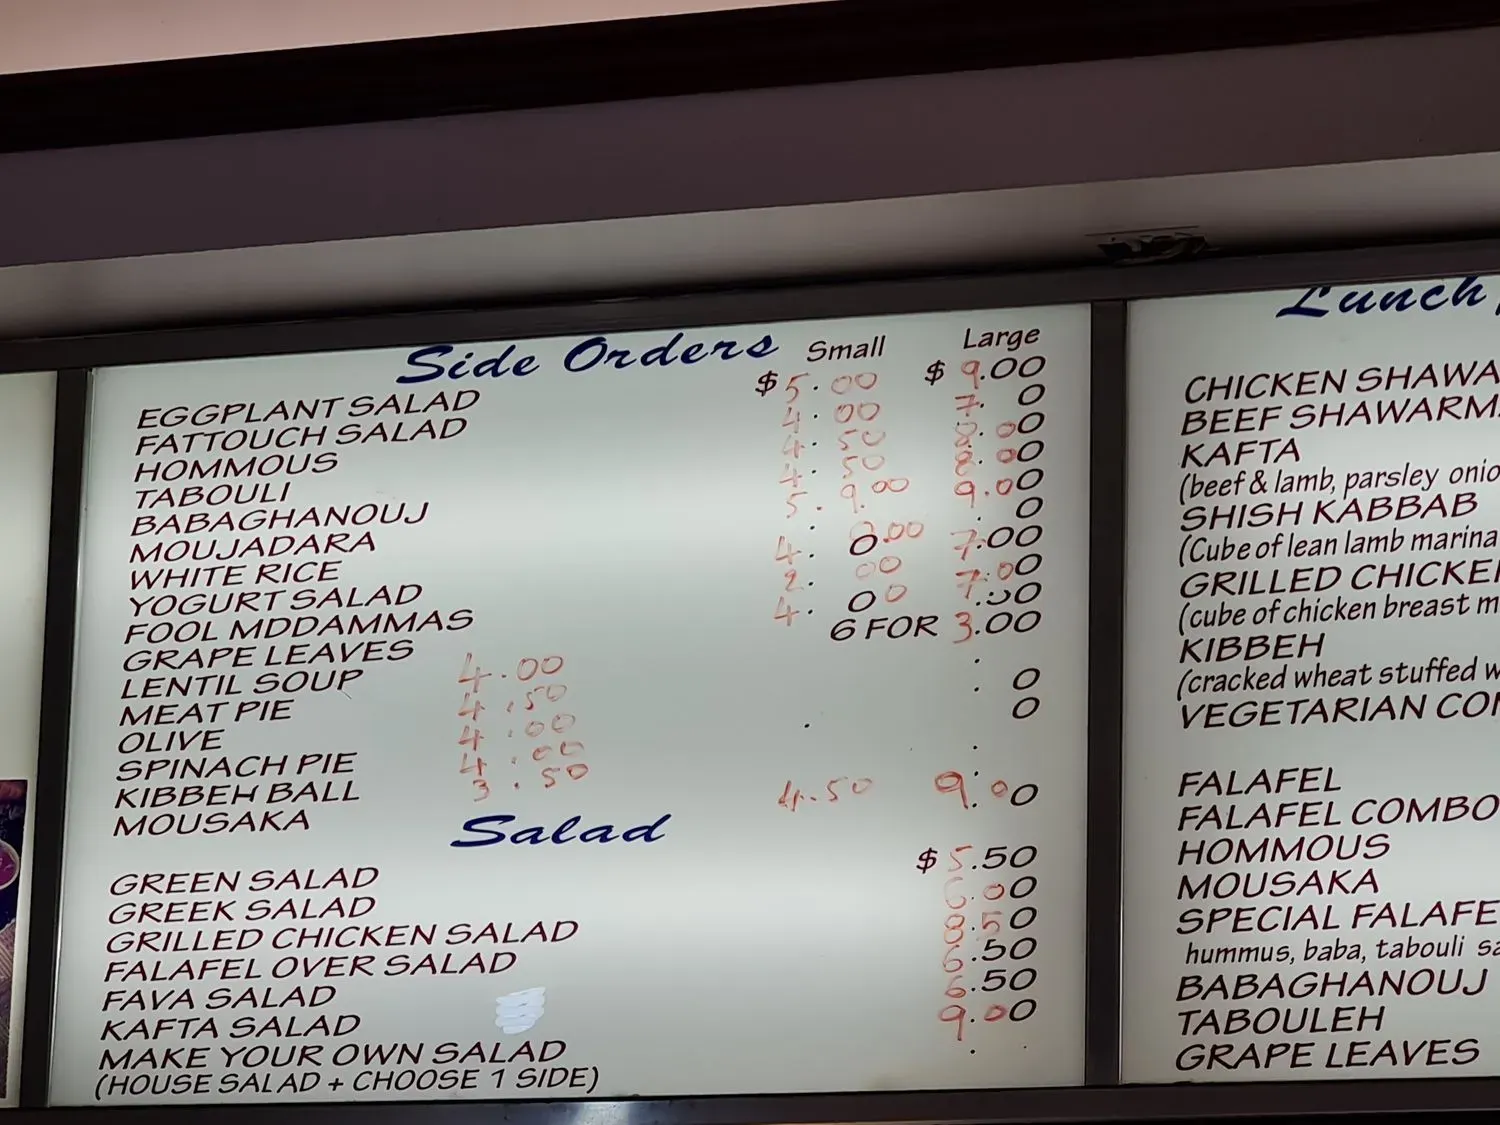 Side Orders Small Large
EGGPLANT SALAD $ 5.00 $ 9.00
FATTOUCH SALAD 4.00 7. 0
HOMMOUS 4.50 8.00
TABOULI 4.50 8.00
BABAGHANOUJ 5. 9.00
MOUJADARA
WHITE RICE 4. 7.00
YOGURT SALAD 2.00 7.00
FOOL MDDAMMAS 4.00 .00
GRAPE LEAVES 6 FOR 3.00
LENTIL SOUP 4.00
MEAT PIE 4.50
OLIVE 4.00
SPINACH PIE 4.00
KIBBEH BALL 3.50
MOUSAKA 4.50 9.00
Salad
GREEN SALAD $ 5.50
GREEK SALAD 6.00
GRILLED CHICKEN SALAD 8.50
FALAFEL OVER SALAD 6.50
FAVA SALAD 6.50
KAFTA SALAD 9.00
MAKE YOUR OWN SALAD
(HOUSE SALAD + CHOOSE 1 SIDE)
Lunch
CHICKEN SHAWA
BEEF SHAWARM
KAFTA
(beef & lamb, parsley onio
SHISH KABBAB
(Cube of lean lamb marina
GRILLED CHICKEN
(cube of chicken breast m
KIBBEH
(cracked wheat stuffed w
VEGETARIAN COM
FALAFEL
FALAFEL COMBO
HOMMOUS
MOUSAKA
SPECIAL FALAFE
hummus, baba, tabouli sa
BABAGHANOUJ
TABOULEH
GRAPE LEAVES